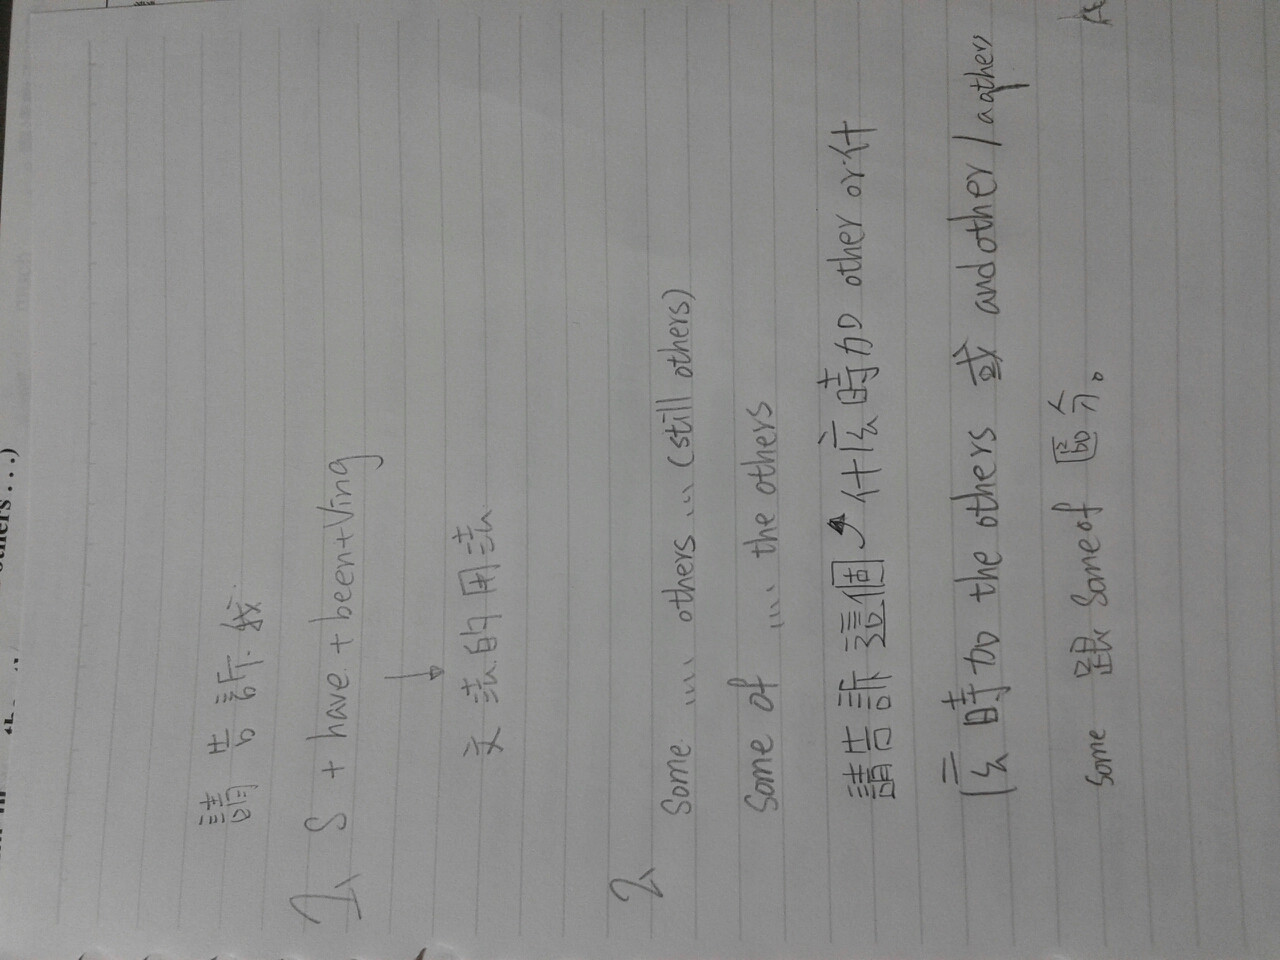 請告訴我
1、S + have + been + Ving
↓
文法的用法
2、
Some ... others ... (still others)
Some of .... the others
請告訴這個↗什麼時加 other or 什
麼時加 the others 或 and other /
some 跟 Some of 區分。